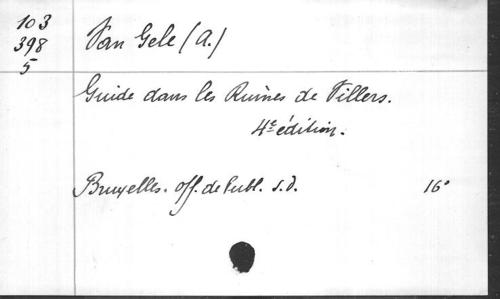 103
398
5
Van Gele (A.)
Guide dans les Ruines de Villers.
4e édition.
Bruxelles. off. de Publ. s.d. 16°